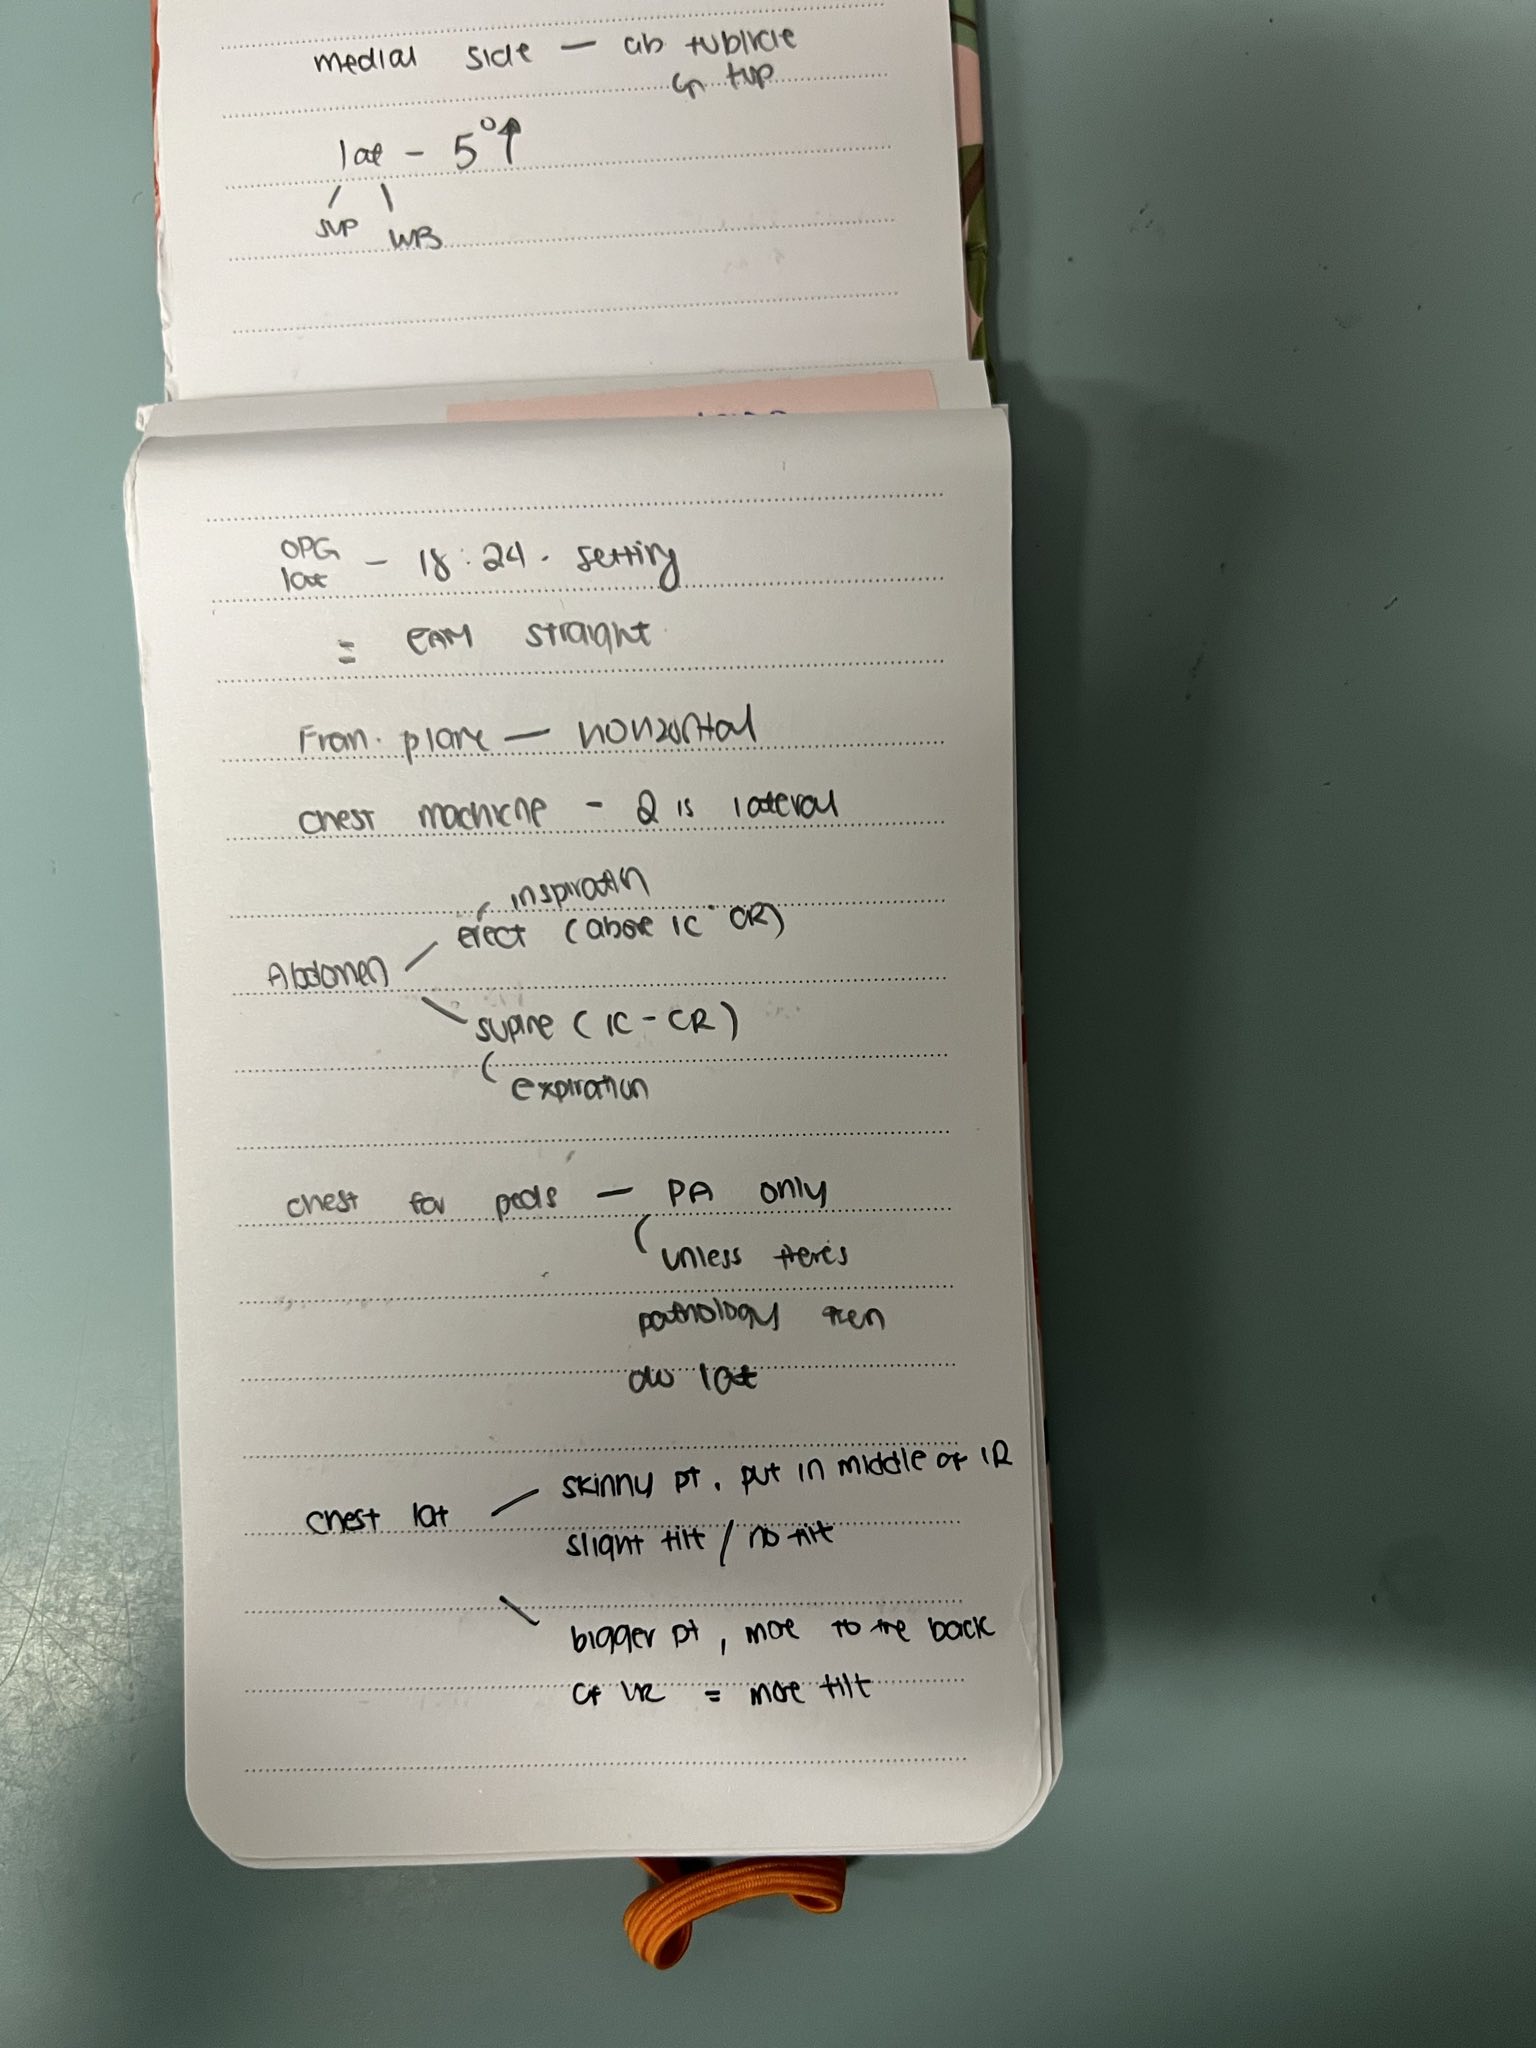 medial side — ab tubircle
on top
lat - 5°↑
sup WB
OPG
lat - 18:24. setting
= EAM straight
Fran. plane — horizontal
chest machine - 2 is lateral
inspiration
erect (above IC CR)
Abdomen
supine (IC - CR)
expiration
chest for peds — PA only
unless there's
pathology then
do lat
chest lat
skinny pt, put in middle of IR
slight tilt / no tilt
bigger pt, more to the back
of IR = more tilt